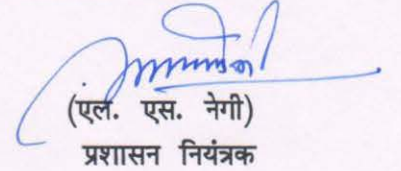 (एल. एस. नेगी)
प्रशासन नियंत्रक